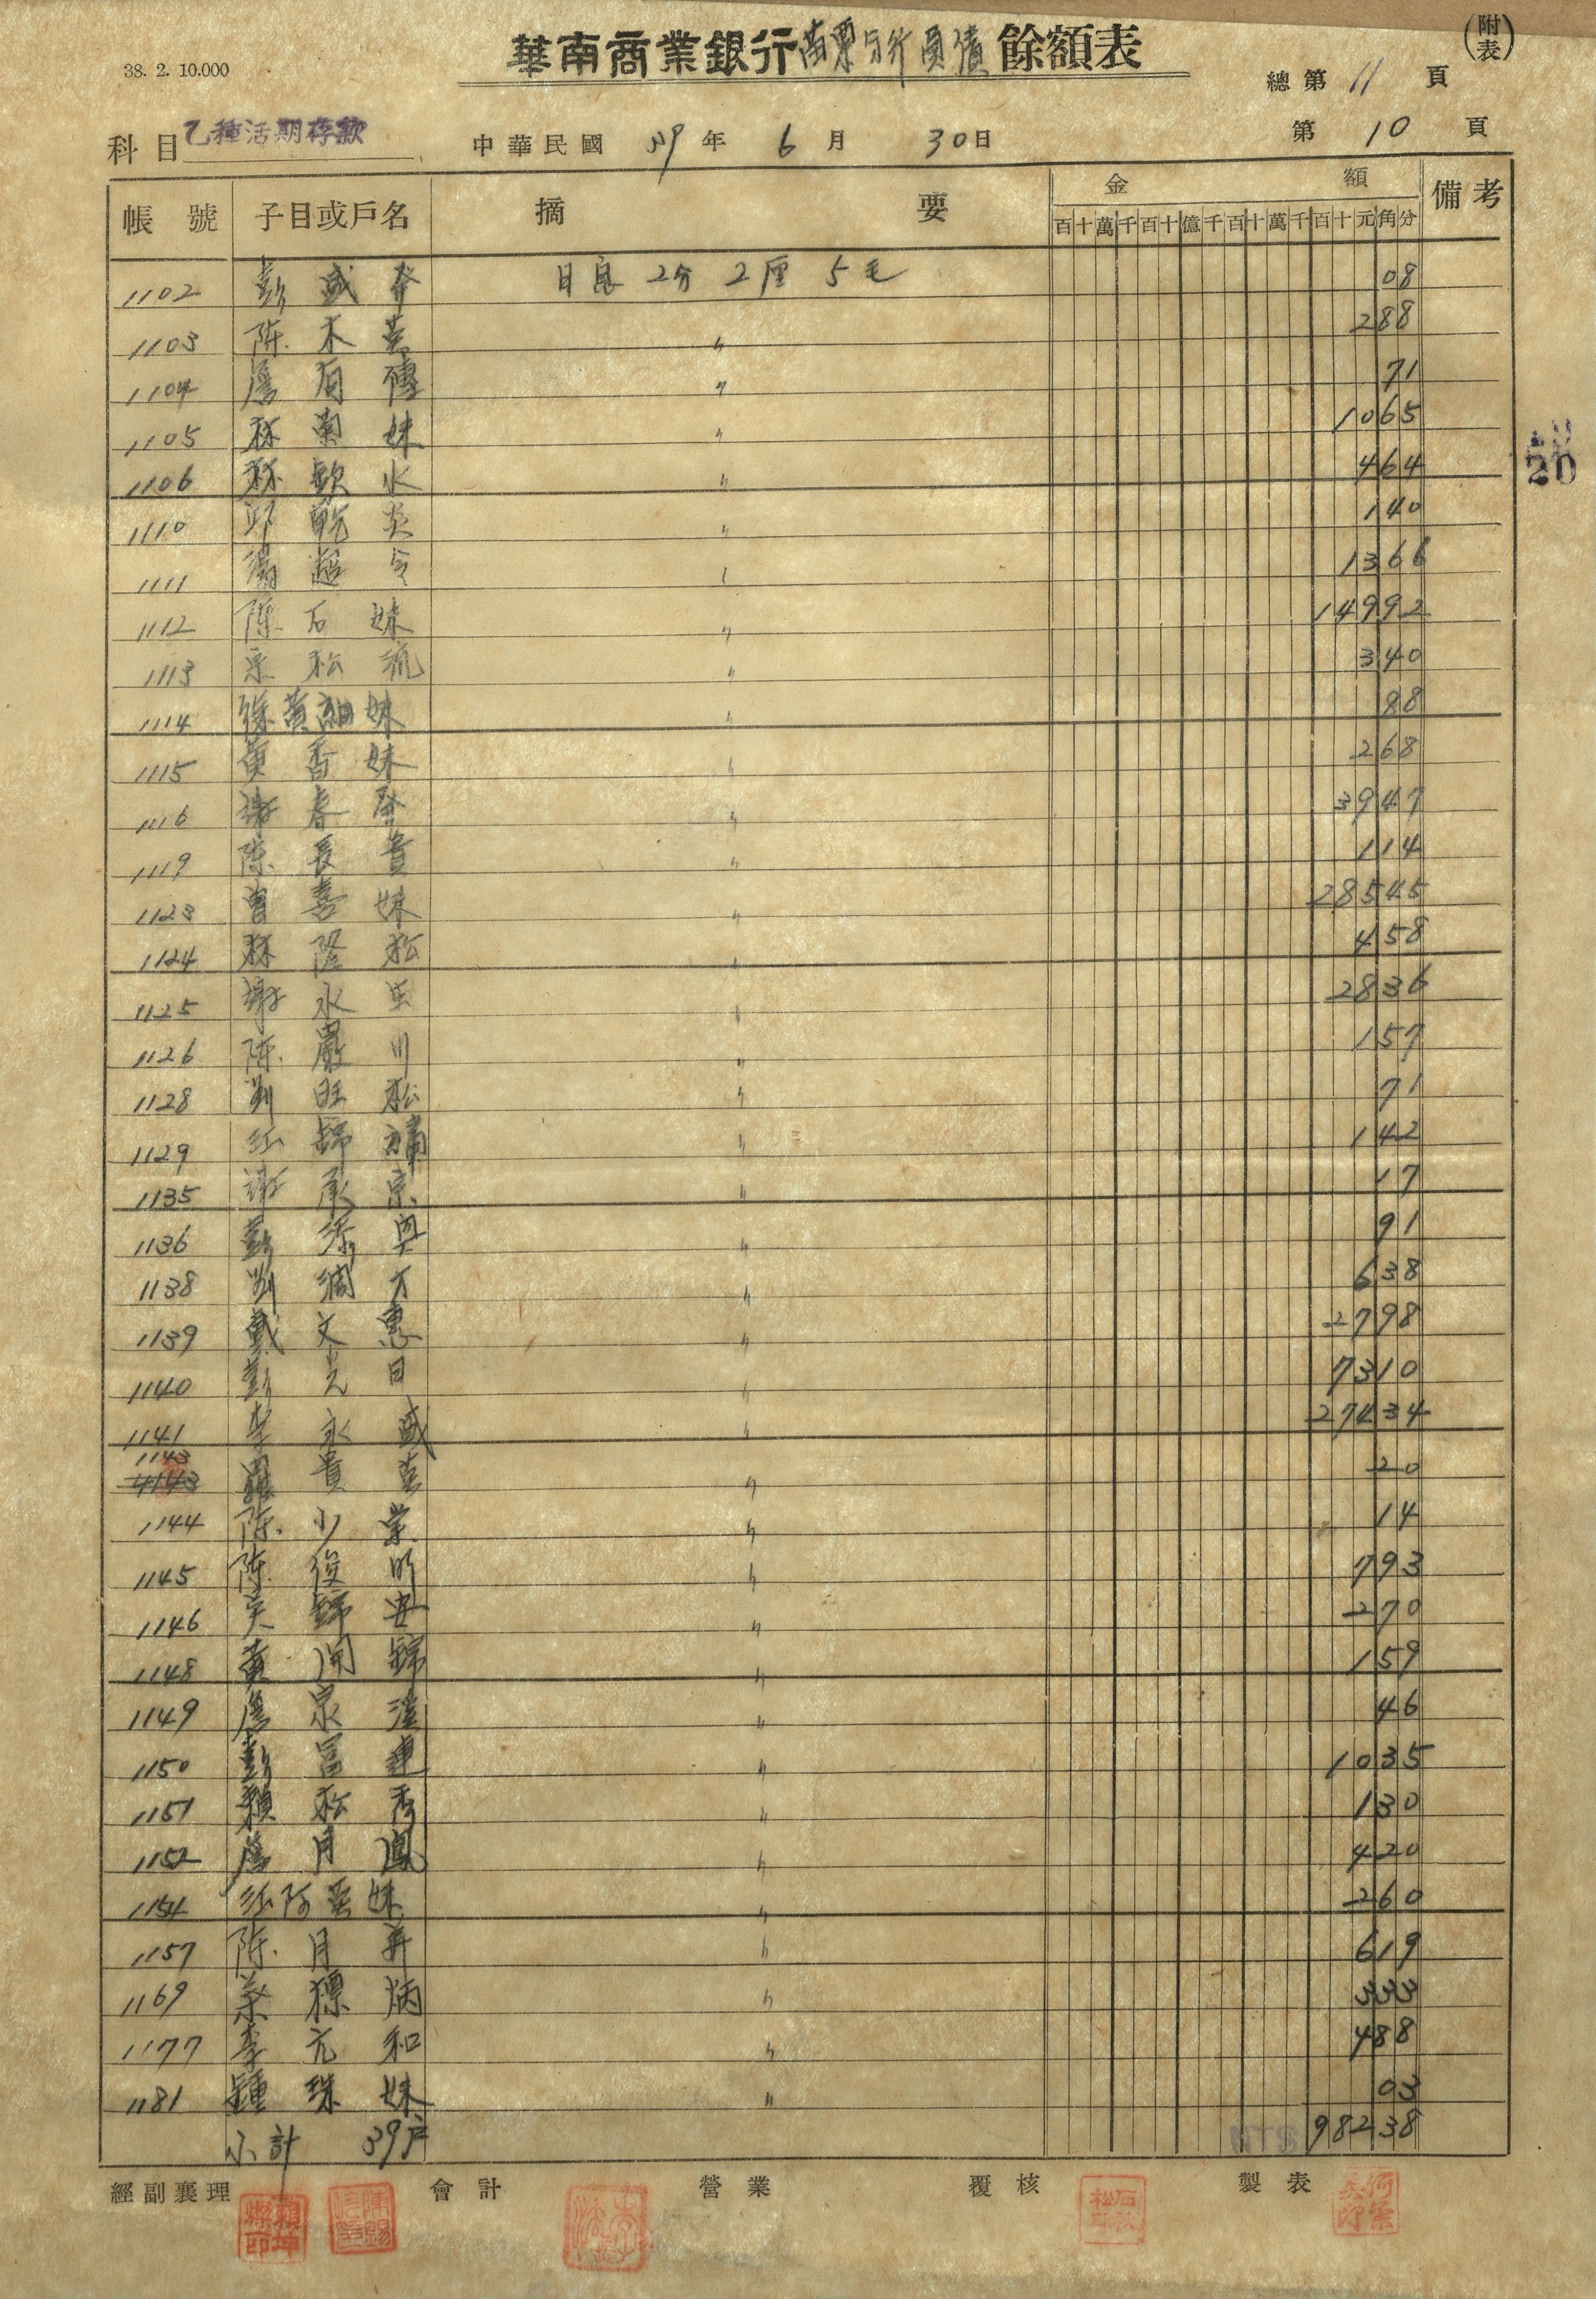 (附表)
38. 2. 10.000
華南商業銀行苗栗分行負債餘額表
總第11頁
科目 乙種活期存款 中華民國 39年 6月 30日 第10頁
帳號 子目或戶名 摘要 金額 備考
百十萬千百十億千百十萬千百十元角分
1102 彭盛 日息 2分 2厘 5毛 08
1103 陈木 〃 288
1104 詹 〃 71
1105 林南妹 〃 1065
20
1106 林欽水 〃 464
1110 邱乾炎 〃 140
1111 湯 〃 1366
1112 陈石妹 〃 14992
1113 松 〃 340
1114 徐黃細妹 〃 88
1115 黃香妹 〃 268
1116 謝春發 〃 3947
1119 陈長貴 〃 114
1123 曾喜妹 〃 28545
1124 林隆松 〃 458
1125 謝永 〃 2836
1126 陈嚴川 〃 157
1128 劉旺松 〃 71
1129 錦 〃 142
1135 謝 〃 17
1136 彭添 〃 91
1138 劉 〃 638
1139 戴文惠 〃 2798
1140 彭光日 〃 7310
1141 李永盛 〃 27434
1143
4143 羅貴 〃 20
1144 陈少 〃 14
1145 陈俊明 〃 793
1146 吴錦 〃 270
1148 黃開錦 〃 159
1149 詹 〃 46
1150 彭 〃 1035
1151 賴松秀 〃 130
1152 詹月鳳 〃 420
1154 阿妹 〃 260
1157 陈月 〃 619
1169 葉標炳 〃 333
1177 李元和 〃 488
1181 鍾珠妹 〃 03
小計 39戶 NT$ 98238
經副襄理 會計 營業 覆核 製表